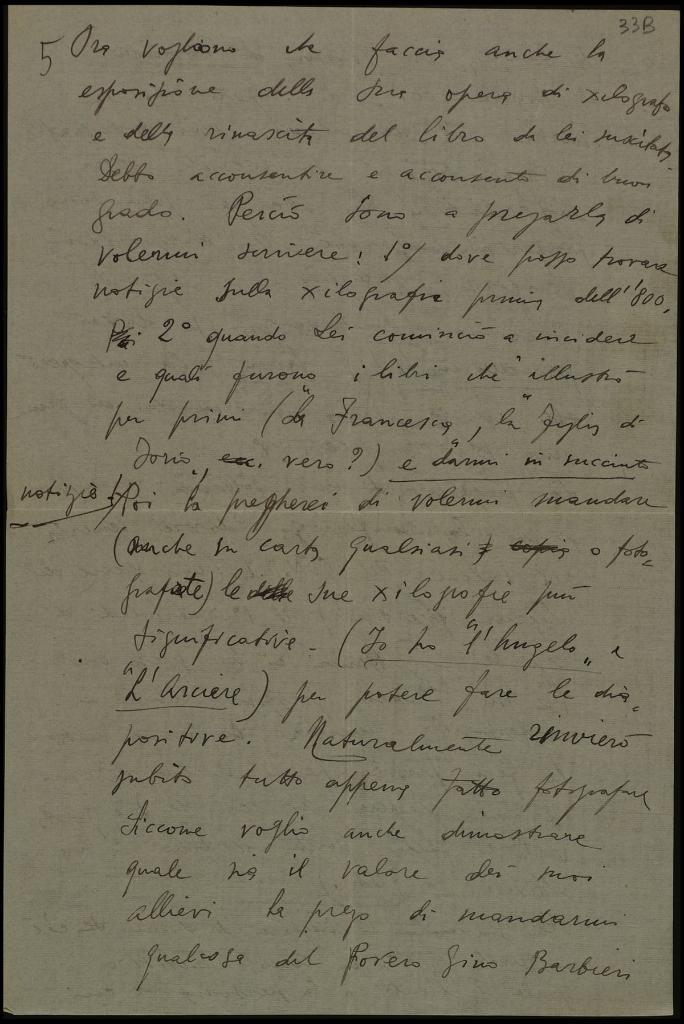 33B
5 Ora vogliono che faccia anche la
esposizione della sua opera di xilografo
e della rinascita del libro da lei suscitata
Debbo acconsentire e acconsento di buon
grado. Perciò sono a pregarla di
volermi scrivere: 1°/ dove posso trovare
notizie sulla xilografia prima dell'800,
2° quando Lei cominciò a incidere
e quali furono i libri che illustrò
per primi (la "Francesca", la "Figlia di
Jorio", ecc. vero?) e darmi in succinto
notizie! Poi la pregherei di volermi mandare
(anche su carta qualsiasi, copia o foto=
grafate) le delle sue xilografie più
significative. (Io ho "l'Angelo" e
"L'Arciere) per potere fare le dia=
positive. Naturalmente rinvierò
subito tutto appena fatto fotografare
Siccome voglio anche dimostrare
quale sia il valore dei suoi
allievi la prego di mandarmi
qualcosa del Povero Gino Barbieri